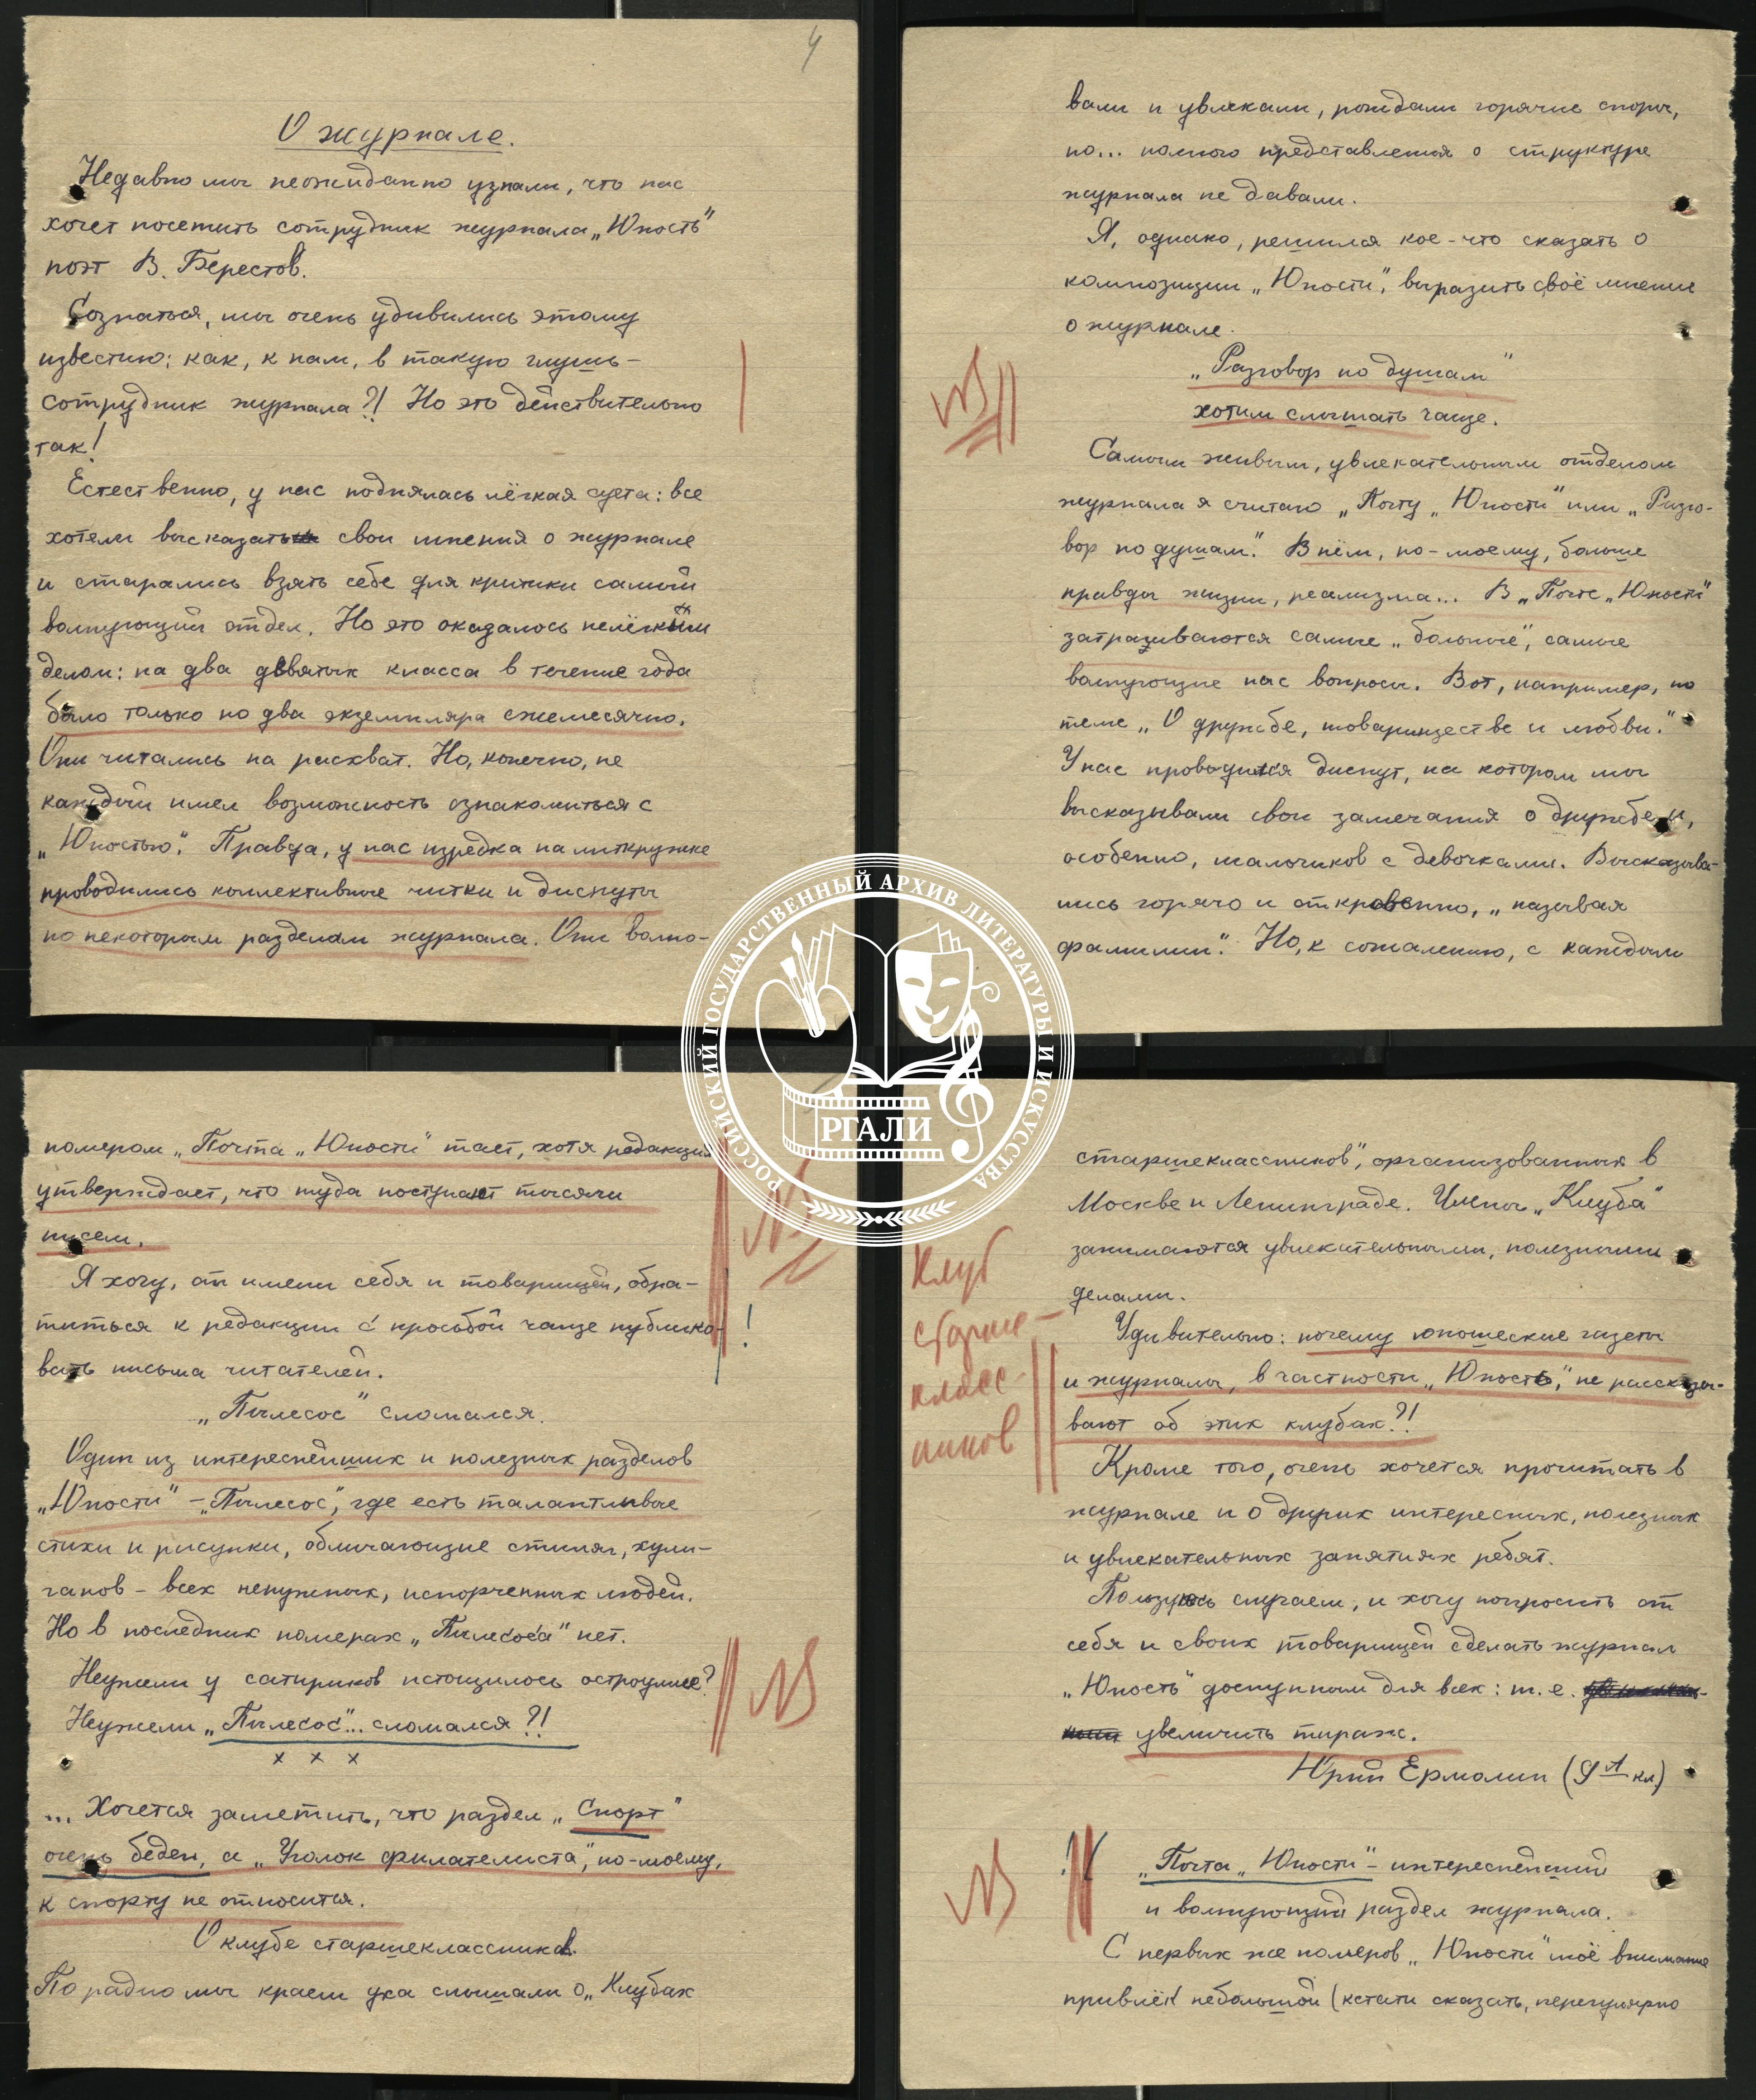 4
О журнале.
Недавно мы неожиданно узнали, что нас
хочет посетить сотрудник журнала „Юность"
поэт В. Берестов.
Сознаться, мы очень удивились этому
известию: как, к нам, в такую глушь –
сотрудник журнала?! Но это действительно
так!
Естественно, у нас поднялась лёгкая суета: все
хотели высказать свои мнения о журнале
и старались взять себе для критики самый
волнующий отдел. Но это оказалось нелёгким
делом: на два девятых класса в течение года
было только по два экземпляра ежемесячно.
Они читались на расхват. Но, конечно, не
каждый имел возможность ознакомиться с
„Юностью". Правда, у нас изредка на литкружке
проводились коллективные читки и диспуты
по некоторым разделам журнала. Они волно-
вали и увлекали, рождали горячие споры,
но... полного представления о структуре
журнала не давали.
Я, однако, решился кое-что сказать о
композиции „Юности", выразить своё мнение
о журнале.
„Разговор по душам"
хотим слышать чаще.
Самым живым, увлекательным отделом
журнала я считаю „Почту „Юности" или „Разго-
вор по душам". В нём, по-моему, больше
правды жизни, реализма... В „Почте „Юности"
затрагиваются самые „больные", самые
волнующие нас вопросы. Вот, например, по
теме „О дружбе, товариществе и любви."
У нас проводился диспут, на котором мы
высказывали свои замечания о дружбе и,
особенно, мальчиков с девочками. Высказыва-
лись горячо и откровенно, „называя
фамилии". Но, к сожалению, с каждым
номером „Почта „Юности" тает, хотя редакция
утверждает, что туда поступают тысячи
писем.
Я хочу, от имени себя и товарищей, обра-
титься к редакции с просьбой чаще публико-
вать письма читателей.
„Пылесос" сломался.
Один из интереснейших и полезных разделов
„Юности" – „Пылесос", где есть талантливые
стихи и рисунки, обличающие стиляг, хули-
ганов – всех ненужных, испорченных людей.
Но в последних номерах „Пылесоса" нет.
Неужели у сатириков истощилось остроумие?
Неужели „Пылесос"... сломался?!
х х х
... Хочется заметить, что раздел „Спорт"
очень беден, а „Уголок филателиста", по-моему,
к спорту не относится.
О клубе старшеклассников.
По радио мы краем уха слышали о „Клубах
старшеклассников", организованных в
Москве и Ленинграде. Члены „Клуба"
занимаются увлекательными, полезными
делами.
Удивительно: почему юношеские газеты
и журналы, в частности „Юность", не рассказы-
вают об этих клубах?!
Кроме того, очень хочется прочитать в
журнале и о других интересных, полезных
и увлекательных занятиях ребят.
Пользуюсь случаем, и хочу попросить от
себя и своих товарищей сделать журнал
„Юность" доступным для всех: т. е.
увеличить тираж.
Юрий Ермолин (9 А кл.)
„Почта „Юности" – интереснейший
и волнующий раздел журнала.
С первых же номеров „Юности" моё внимание
привлёк небольшой (кстати сказать, нерегулярно
Клуб
старше-
класс-
ников
NB
NB
NB
NB
!
РОССИЙСКИЙ ГОСУДАРСТВЕННЫЙ АРХИВ ЛИТЕРАТУРЫ И ИСКУССТВА
РГАЛИ